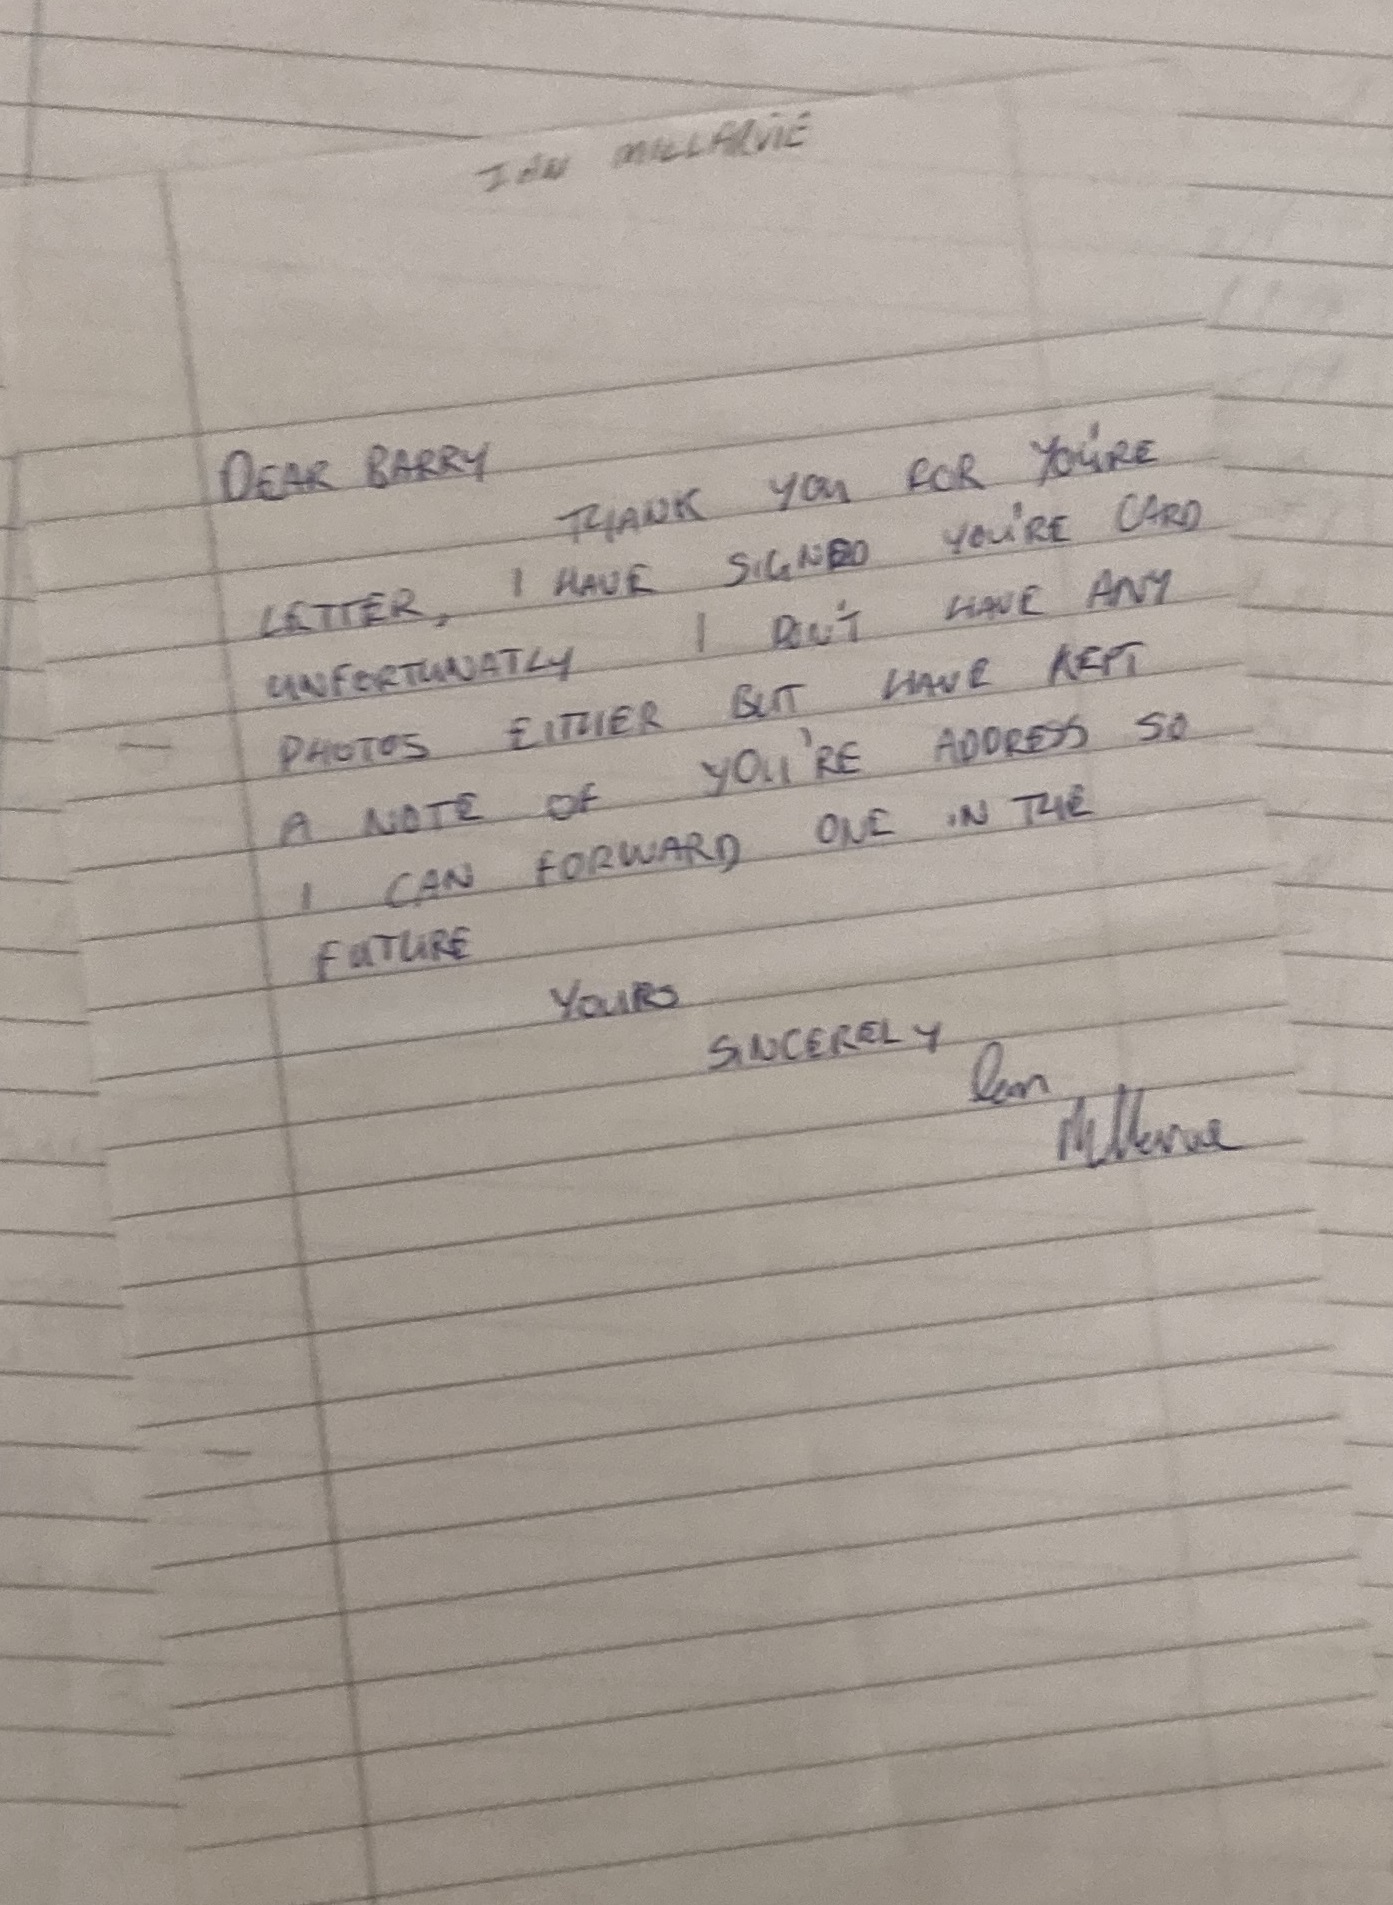 IAN MILLARVIE
DEAR BARRY
THANK YOU FOR YOU'RE
LETTER, I HAVE SIGNED YOU'RE CARD
UNFORTUNATLY I DON'T HAVE ANY
PHOTOS EITHER BUT HAVE KEPT
A NOTE OF YOU'RE ADDRESS SO
I CAN FORWARD ONE IN THE
FUTURE
YOURS
SINCERELY
Ian
Millarvie